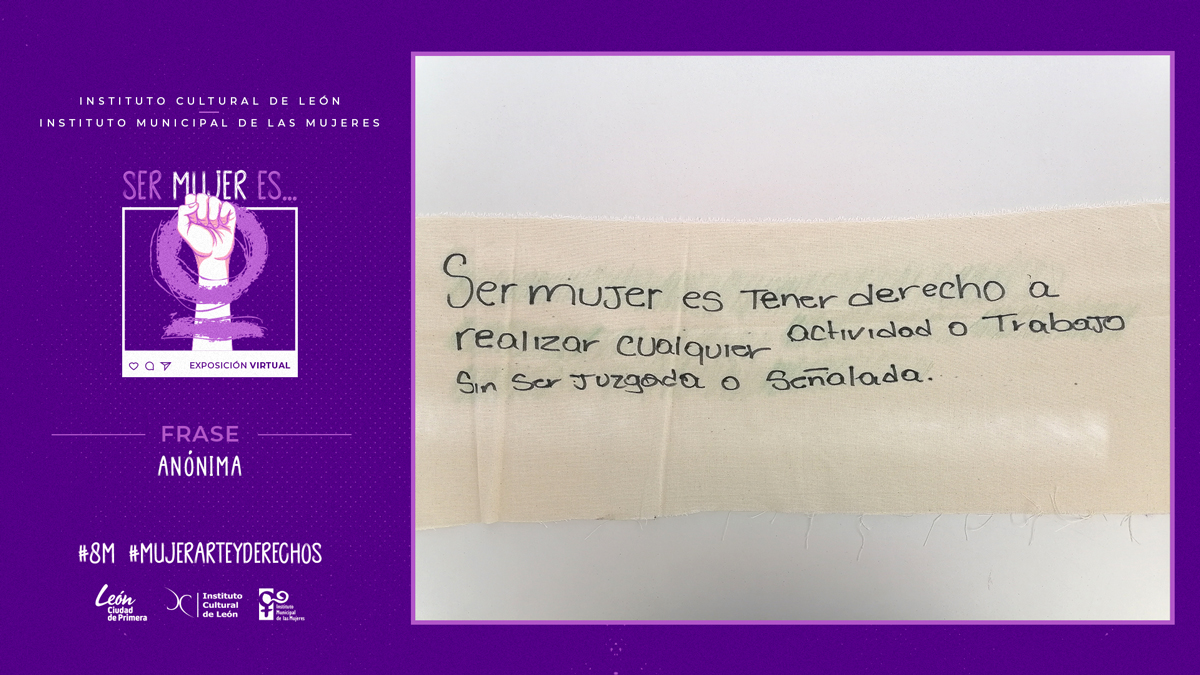 INSTITUTO CULTURAL DE LEÓN
INSTITUTO MUNICIPAL DE LAS MUJERES
SER MUJER ES...
EXPOSICIÓN VIRTUAL
FRASE
ANÓNIMA
#8M #MUJERARTEYDERECHOS
León
Ciudad
de Primera
Instituto
Cultural
de León
Instituto
Municipal
de las Mujeres
Ser mujer es Tener derecho a
realizar cualquier actividad o Trabajo
Sin Ser Juzgada o Señalada.